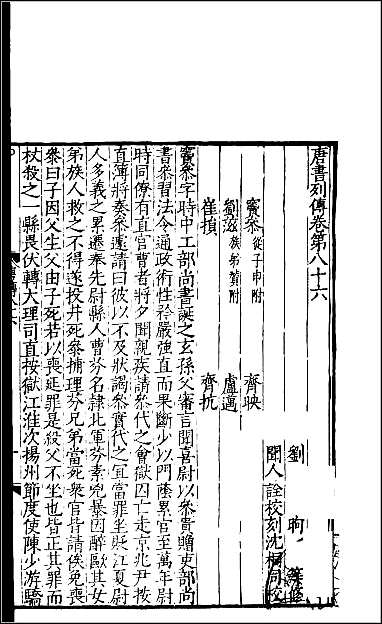 唐書列傳卷第八十六
劉昫等修
聞人詮校刻沈桐同校
竇參從子申附 齊映
劉滋從弟贊附 盧邁
崔損 齊抗
竇參字時中工部尚書誕之玄孫父審言聞喜尉以參貴贈吏部尚
書參習法令通政術性矜嚴強直而果斷少以門蔭累官至萬年尉
時同僚有直官曹者將夕聞親疾請參代之會獄囚亡走京兆尹按
直簿將奏參遽請曰彼以不及狀謁參實代之宜當罪坐貶江夏尉
人多義之累遷奉先尉縣人曹芬名隸北軍芬素兇暴因醉毆其女
弟族人救之不得遂投井死參捕理芬兄弟當死衆官皆請俟免喪
參曰子因父生父由子死若以喪延罪是殺父不坐也皆正其罪而
杖殺之一縣畏伏轉大理司直按獄江淮次揚州節度使陳少游驕